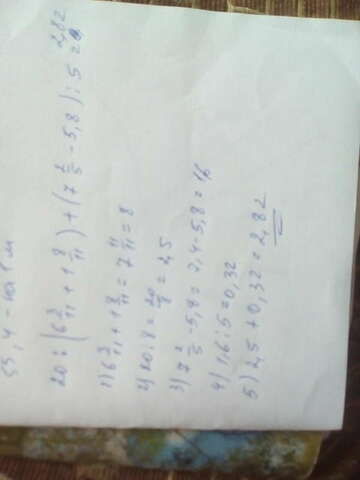 20 : (6 3/11 + 1 8/11) + (7 2/5 - 5,8) : 5 = 2,82
1) 6 3/11 + 1 8/11 = 7 11/11 = 8
2) 20 : 8 = 20/8 = 2,5
3) 7 2/5 - 5,8 = 7,4 - 5,8 = 1,6
4) 1,6 : 5 = 0,32
5) 2,5 + 0,32 = 2,82